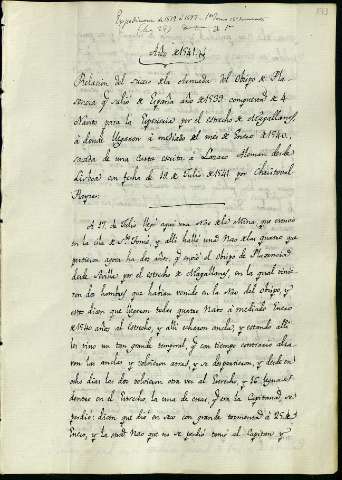 193
Expediciones de 1519 á 1577
Año de 1541.
Relacion del suceso de la Armada del Obispo de Pla-
sencia q.e salió de España año de 1539 compuesta de 4
Navios para la Especeria por el estrecho de Magallanes,
á donde llegaron á mediados del mes de Enero de 1540,
sacada de una carta escrita á Lazaro Aleman desde
Lisboa con fecha de 18 de Julio de 1541 por Christoval
Rayser.
A 17. de Julio llegó aqui una Nao de la Mina, que estuvo
en la isla de S.to Tomé, y alli halló una Nao de las quatro que
partieron agora ha dos años, q.e envió el Obispo de Plasencia
desde Sevilla por el estrecho de Magallanes, en la qual vinie-
ron dos hombres que habian venido en la Nao del Obispo, y
estos dicen que llegaron todas quatro Naos á mediado Enero
de 1540 años al Estrecho, y alli echaron anclas, y estando alli
les vino un tan grande temporal, q.e con tiempo contrario alza-
ron las anclas y volvieron atras, y se desparcieron, y desde en
ocho dias las dos volvieron otra vez al Estrecho, y 16 leguas
dentro en el Estrecho, la una de ellas, q.e era la Capitana, se
perdió: dicen que dió en seco con grande tormenta á 25 de
Enero, y la otra Nao que no se perdió tomó al Capitan y